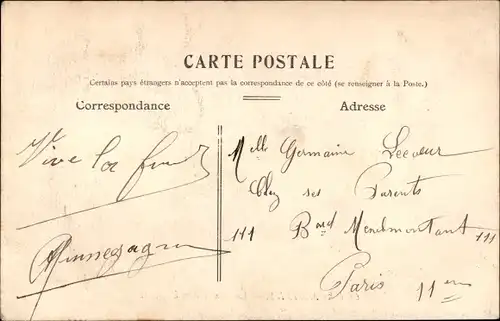 CARTE POSTALE
Certains pays étrangers n'acceptent pas la correspondance de ce côté (se renseigner à la Poste.)
Correspondance
Adresse
Vive la
Melle Germaine
Chez ses Parents
111 Bard Menilmontant 111
Paris 11em